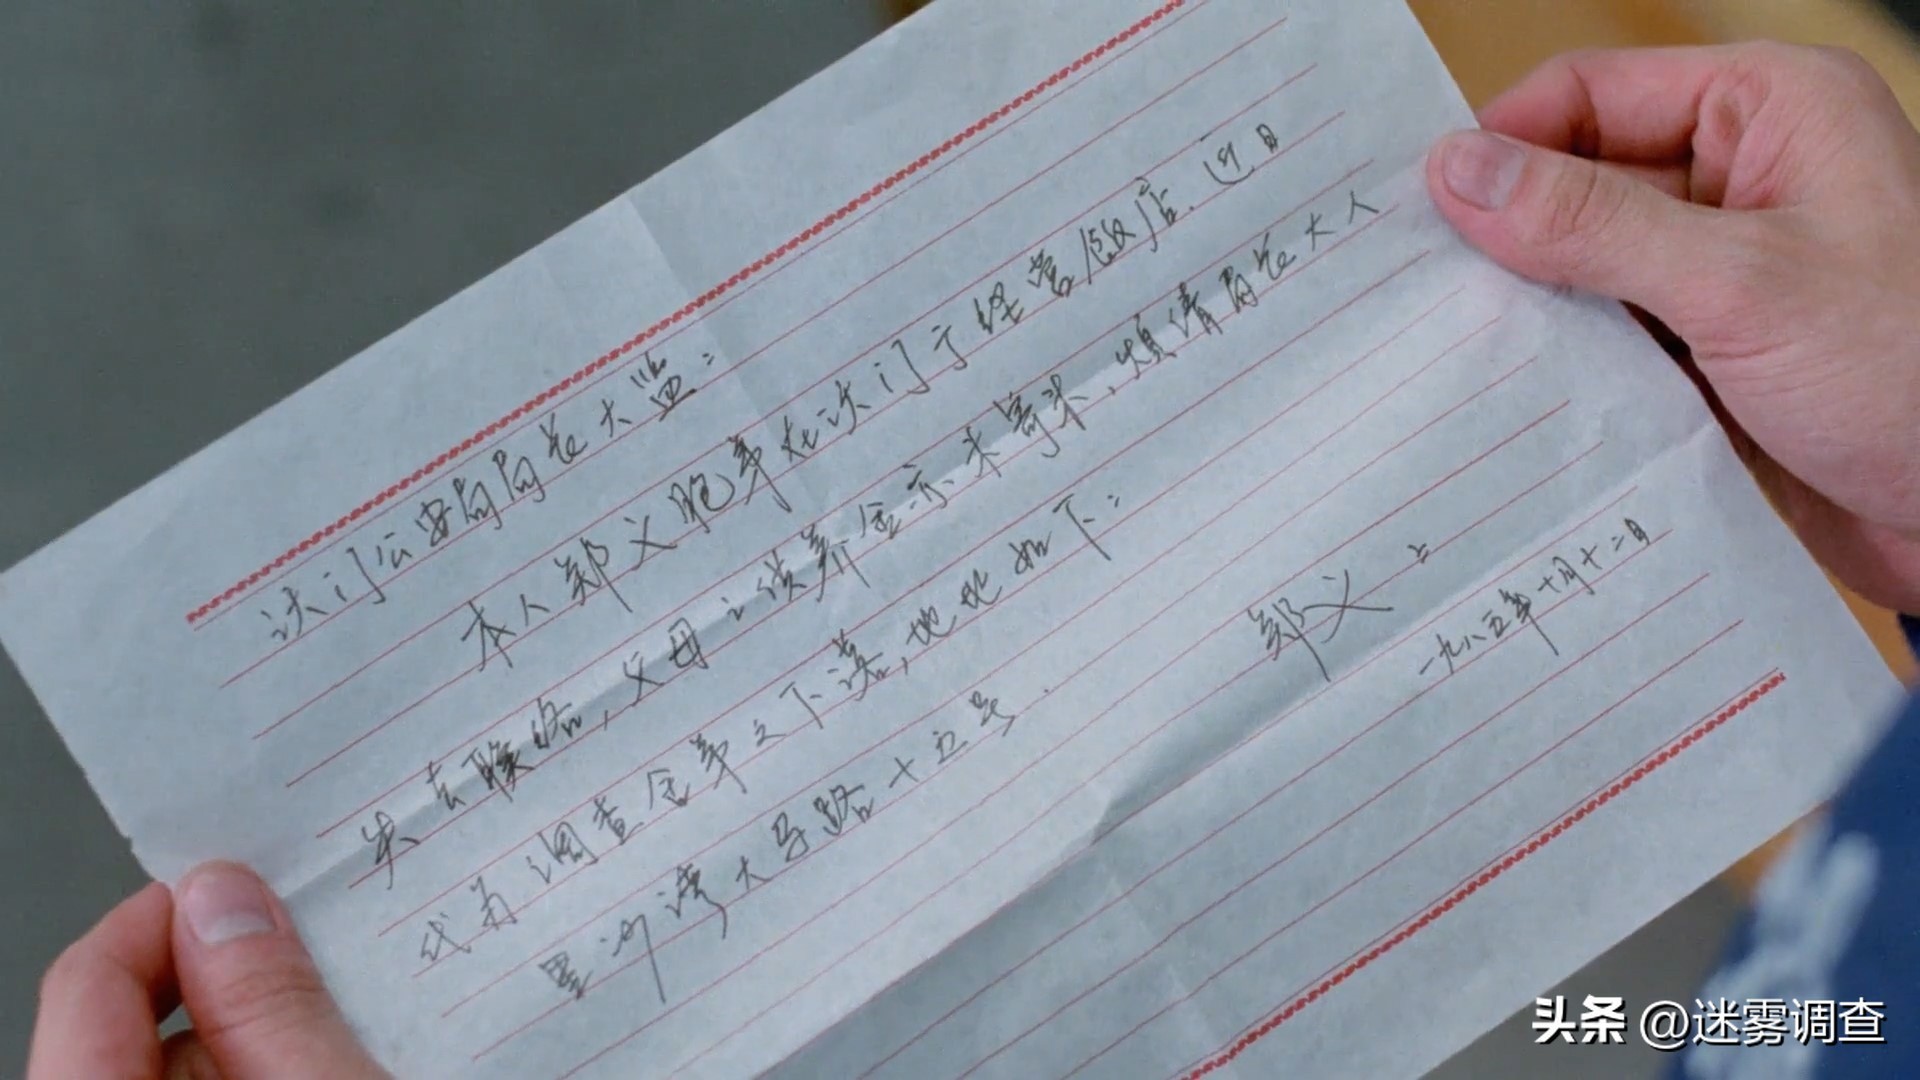 沃门公安局局长大监：
本人郑义胞弟在沃门于经营饭店．近日
失去联络，父母之供养金亦未寄来，烦请局长大人
代为调查舍弟之下落，地址如下：
黑沙湾大马路十五号．
郑义上
一九八五年十月十二日
头条 @迷雾调查